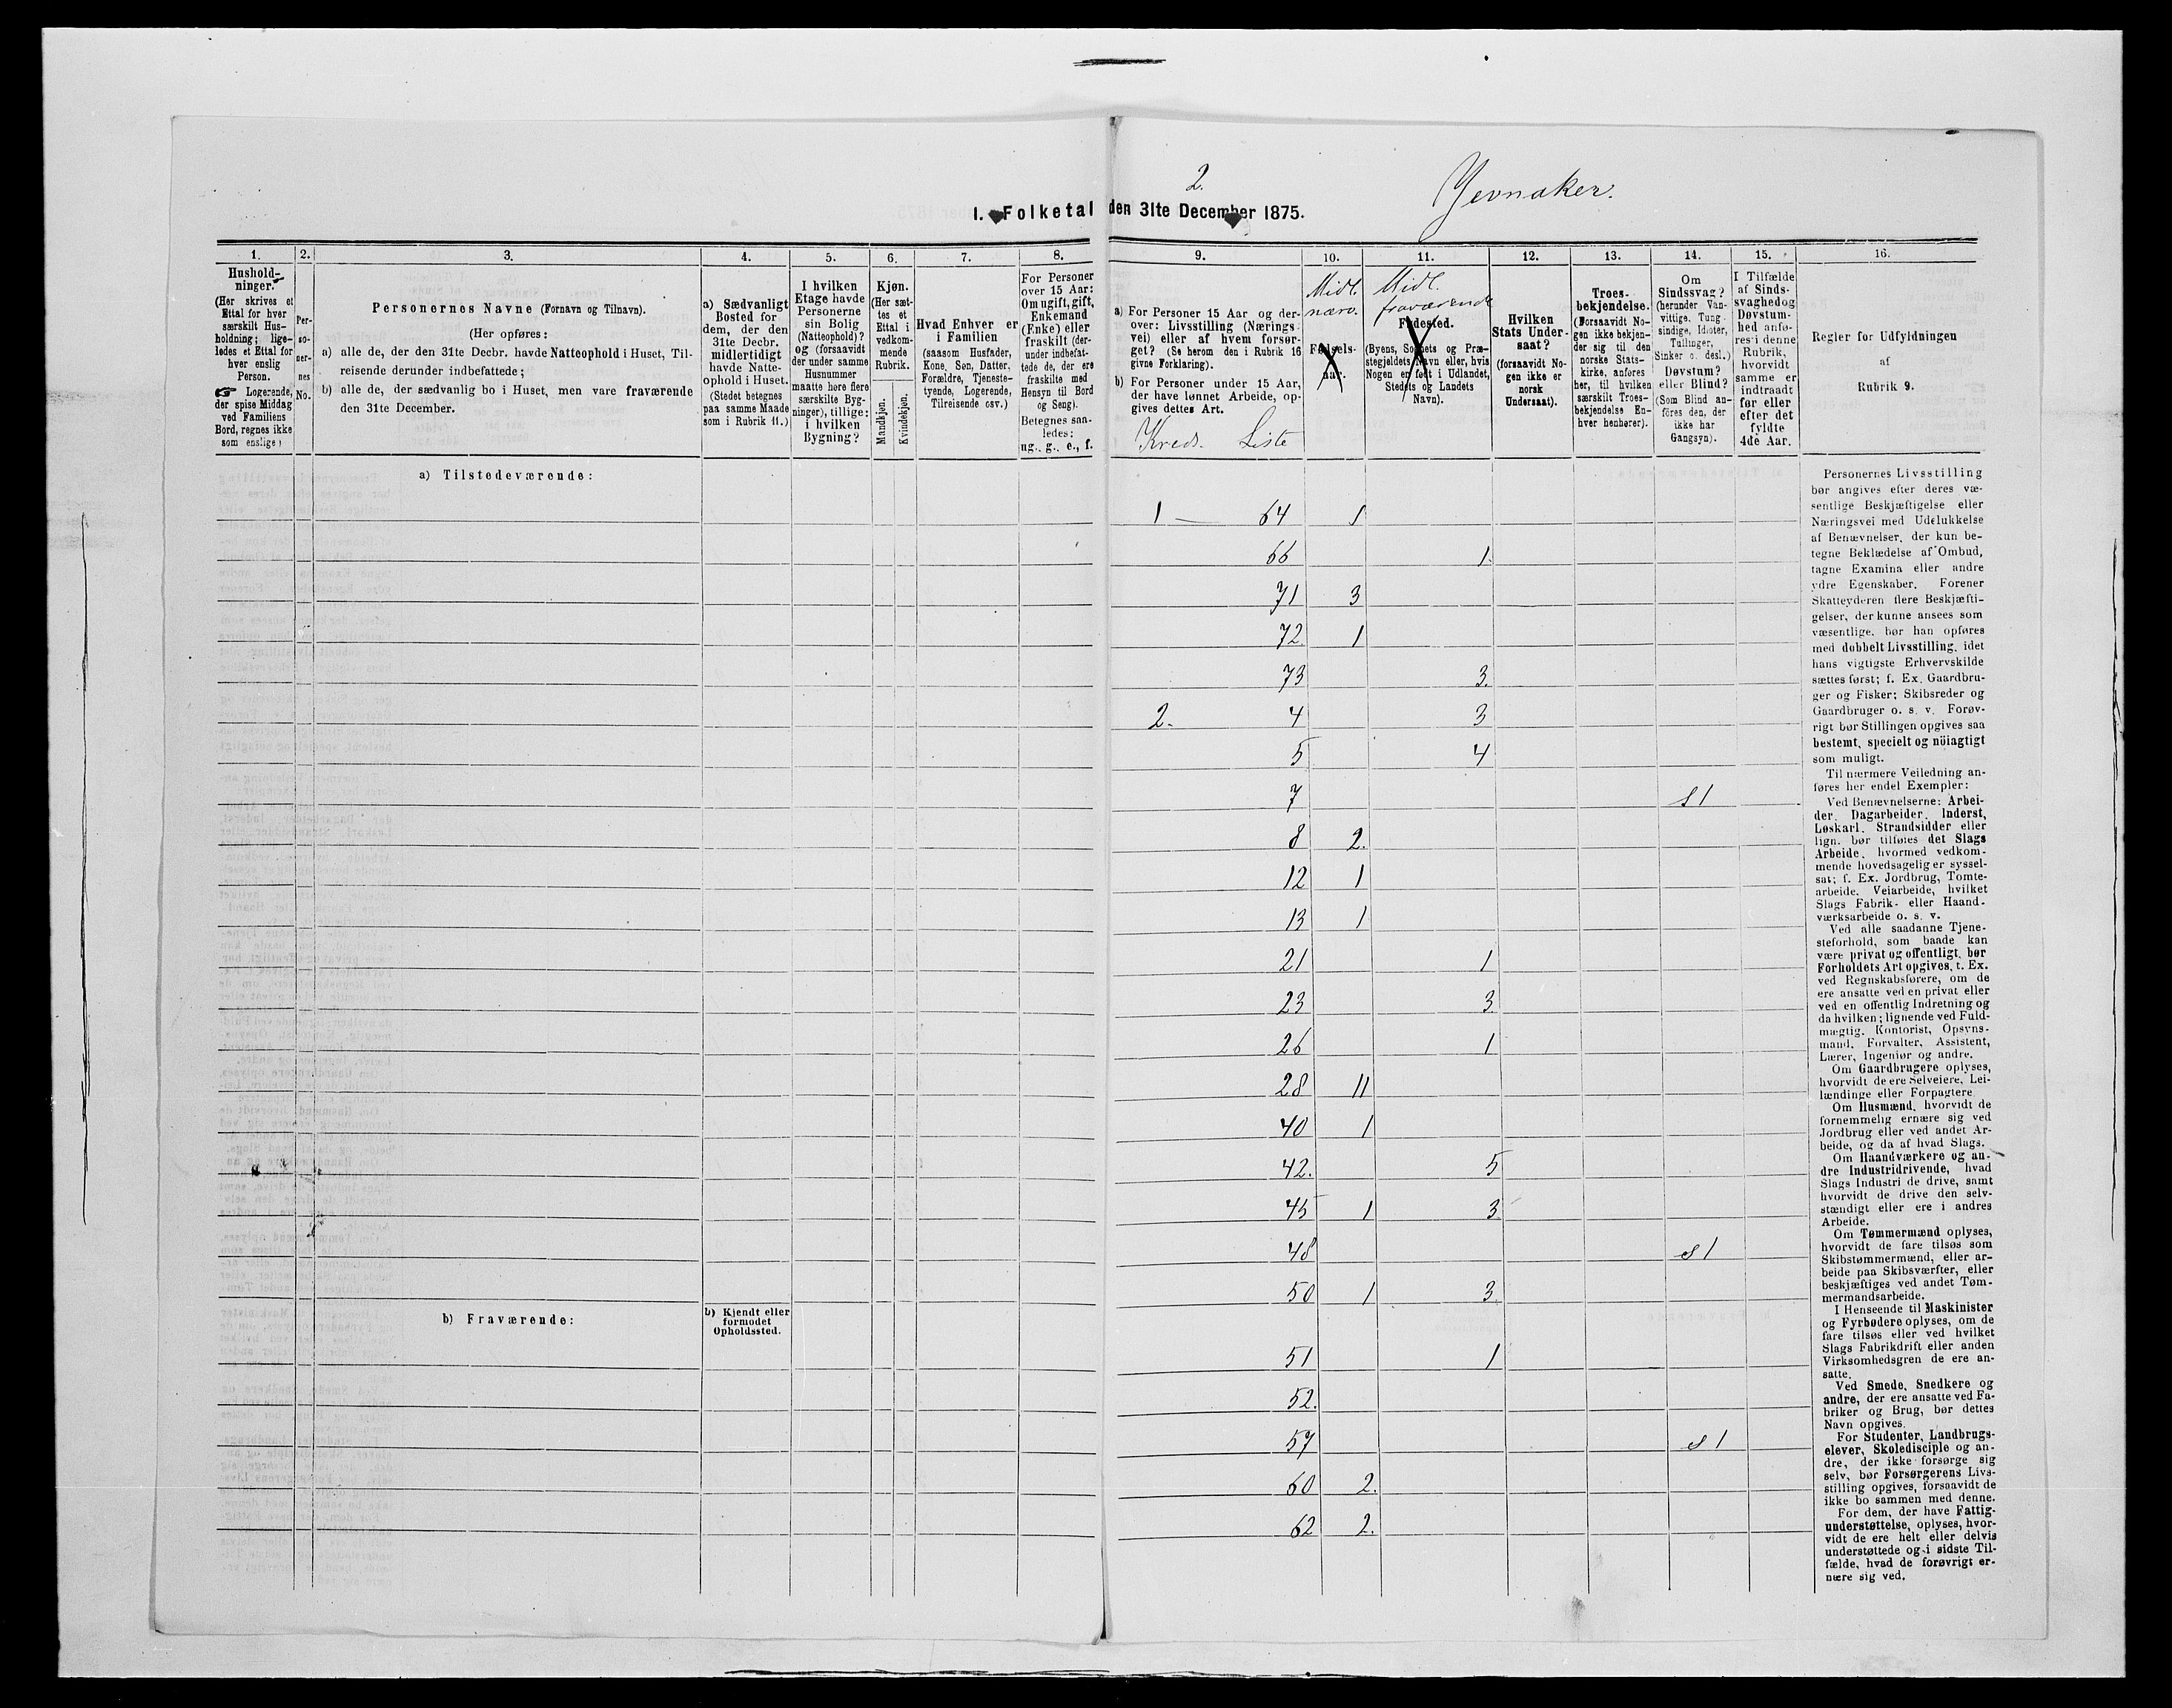 2.
Jevnaker.
I. Folketal den 31te December 1875.
1.
2.
3.
4.
5.
6.
7.
8.
9.
10.
11.
12.
13.
14.
15.
16.
Hushold-
ninger.
(Her skrives et
Ettal for hver
særskilt Hus-
holdning; lige-
ledes et Ettal for
hver enslig
Person.
☞ Logerende,
der spise Middag
ved Familiens
Bord, regnes ikke
som enslige)
Per-
so-
ner-
nes
No.
Personernes Navne (Fornavn og Tilnavn).
(Her opføres:
a) alle de, der den 31te Decbr. havde Natteophold i Huset, Til-
reisende derunder indbefattede;
b) alle de, der sædvanlig bo i Huset, men vare fraværende
den 31te December.
a) Sædvanligt
Bosted for
dem, der den
31te Decbr.
midlertidigt
havde Natte-
ophold i Huset.
(Stedet betegnes
paa samme Maade
som i Rubrik 11.)
I hvilken
Etage havde
Personerne
sin Bolig
(Natteophold)?
og (forsaavidt
der under samme
Husnummer
maatte høre flere
særskilte Byg-
ninger), tillige:
i hvilken
Bygning?
Kjøn.
(Her sæt-
tes et
Ettal i
vedkom-
mende
Rubrik.
Mandkjøn.
Kvindekjøn.
Hvad Enhver er
i Familien
(saasom Husfader,
Kone, Søn, Datter,
Forældre, Tjeneste-
tyende, Logerende,
Tilreisende osv.)
For Personer
over 15 Aar:
Om ugift, gift,
Enkemand
(Enke) eller
fraskilt (der-
under indbefat-
tede de, der ere
fraskilte med
Hensyn til Bord
og Seng).
Betegnes saa-
ledes:
ug., g., e., f.
a) For Personer 15 Aar og der-
over: Livsstilling (Nærings-
vei) eller af hvem forsør-
get? (Se herom den i Rubrik 16
givne Forklaring).
b) For Personer under 15 Aar,
der have lønnet Arbeide, op-
gives dettes Art.
Kreds. Liste
Midl.
nærv.
Fødsels-
aar.
Midl.
fraværende
Fødested.
(Byens, Sognets og Præ-
stegjeldets Navn eller, hvis
Nogen er født i Udlandet,
Stedets og Landets
Navn).
Hvilken
Stats Under-
saat?
(forsaavidt No-
gen ikke er
norsk
Undersaat).
Troes-
bekjendelse.
(Forsaavidt No-
gen ikke bekjen-
der sig til den
norske Stats-
kirke, anføres
her, til hvilken
særskilt Troes-
bekjendelse En-
hver henhører).
Om
Sindssvag?
(herunder Van-
vittige, Tung-
sindige, Idioter,
Tullinger,
Sinker o. desl.)
Døvstum?
eller Blind?
(Som Blind an-
føres den, der
ikke har
Gangsyn).
I Tilfælde
af Sinds-
svaghed og
Døvstum-
hed anfø-
res i denne
Rubrik,
hvorvidt
samme er
indtraadt
før eller
efter det
fyldte
4de Aar.
Regler for Udfyldningen
af
Rubrik 9.
a) Tilstedeværende:
1 — 64 1
66 1.
71 3
72. 1
73 3.
2. 4 3
5 4
7 s 1
8 2.
12 1
13 1
21 1
23 3
26 1
28 11
40 1
42. 5
45 1 3
48 s 1
50 1 3
b) Fraværende:
b) Kjendt eller
formodet
Opholdssted.
51 1
52.
57 s 1
60 2.
62 2.
Personernes Livsstilling
bør angives efter deres væ-
sentlige Beskjæftigelse eller
Næringsvei med Udelukkelse
af Benævnelser, der kun be-
tegne Beklædelse af Ombud,
tagne Examina eller andre
ydre Egenskaber. Forener
Skatteyderen flere Beskjæfti-
gelser, der kunne ansees som
væsentlige, bør han opføres
med dobbelt Livsstilling, idet
hans vigtigste Erhvervskilde
sættes først; f. Ex. Gaardbru-
ger og Fisker; Skibsreder og
Gaardbruger o. s. v. Forøv-
rigt bør Stillingen opgives saa
bestemt, specielt og nöiagtigt
som muligt.
Til nærmere Veiledning an-
føres her endel Exempler:
Ved Benævnelserne: Arbei-
der, Dagarbeider, Inderst,
Løskarl, Strandsidder eller
lign. bør tilføies det Slags
Arbeide, hvormed vedkom-
mende hovedsagelig er syssel-
sat; f. Ex. Jordbrug, Tomte-
arbeide, Veiarbeide, hvilket
Slags Fabrik- eller Haand-
værksarbeide o. s. v.
Ved alle saadanne Tjene-
steforhold, som baade kan
være privat og offentligt, bør
Forholdets Art opgives, t. Ex.
ved Regnskabsførere, om de
ere ansatte ved en privat eller
ved en offentlig Indretning og
da hvilken; lignende ved Fuld-
mægtig, Kontorist, Opsyns-
mand, Forvalter, Assistent,
Lærer, Ingeniør og andre.
Om Gaardbrugere oplyses,
hvorvidt de ere Selveiere, Lei-
lændinge eller Forpagtere.
Om Husmænd, hvorvidt de
fornemmelig ernære sig ved
Jordbrug eller ved andet Ar-
beide, og da af hvad Slags.
Om Haandværkere og an-
dre Industridrivende, hvad
Slags Industri de drive, samt
hvorvidt de drive den selv-
stændigt eller ere i andres
Arbeide.
Om Tømmermænd oplyses,
hvorvidt de fare tilsøs som
Skibstømmermænd, eller ar-
beide paa Skibsværfter, eller
beskjæftiges ved andet Tøm-
mermandsarbeide.
I Henseende til Maskinister
og Fyrbødere oplyses, om de
fare tilsøs eller ved hvilket
Slags Fabrikdrift eller anden
Virksomhedsgren de ere an-
satte.
Ved Smede, Snedkere og
andre, der ere ansatte ved Fa-
briker og Brug, bør dettes
Navn opgives.
For Studenter, Landbrugs-
elever, Skoledisciple og an-
dre, der ikke forsørge sig
selv, bør Forsørgerens Livs-
stilling opgives, forsaavidt de
ikke bo sammen med denne.
For dem, der have Fattig-
understøttelse, oplyses, hvor-
vidt de ere helt eller delvis
understøttede og i sidste Til-
fælde, hvad de forøvrigt er-
nære sig ved.